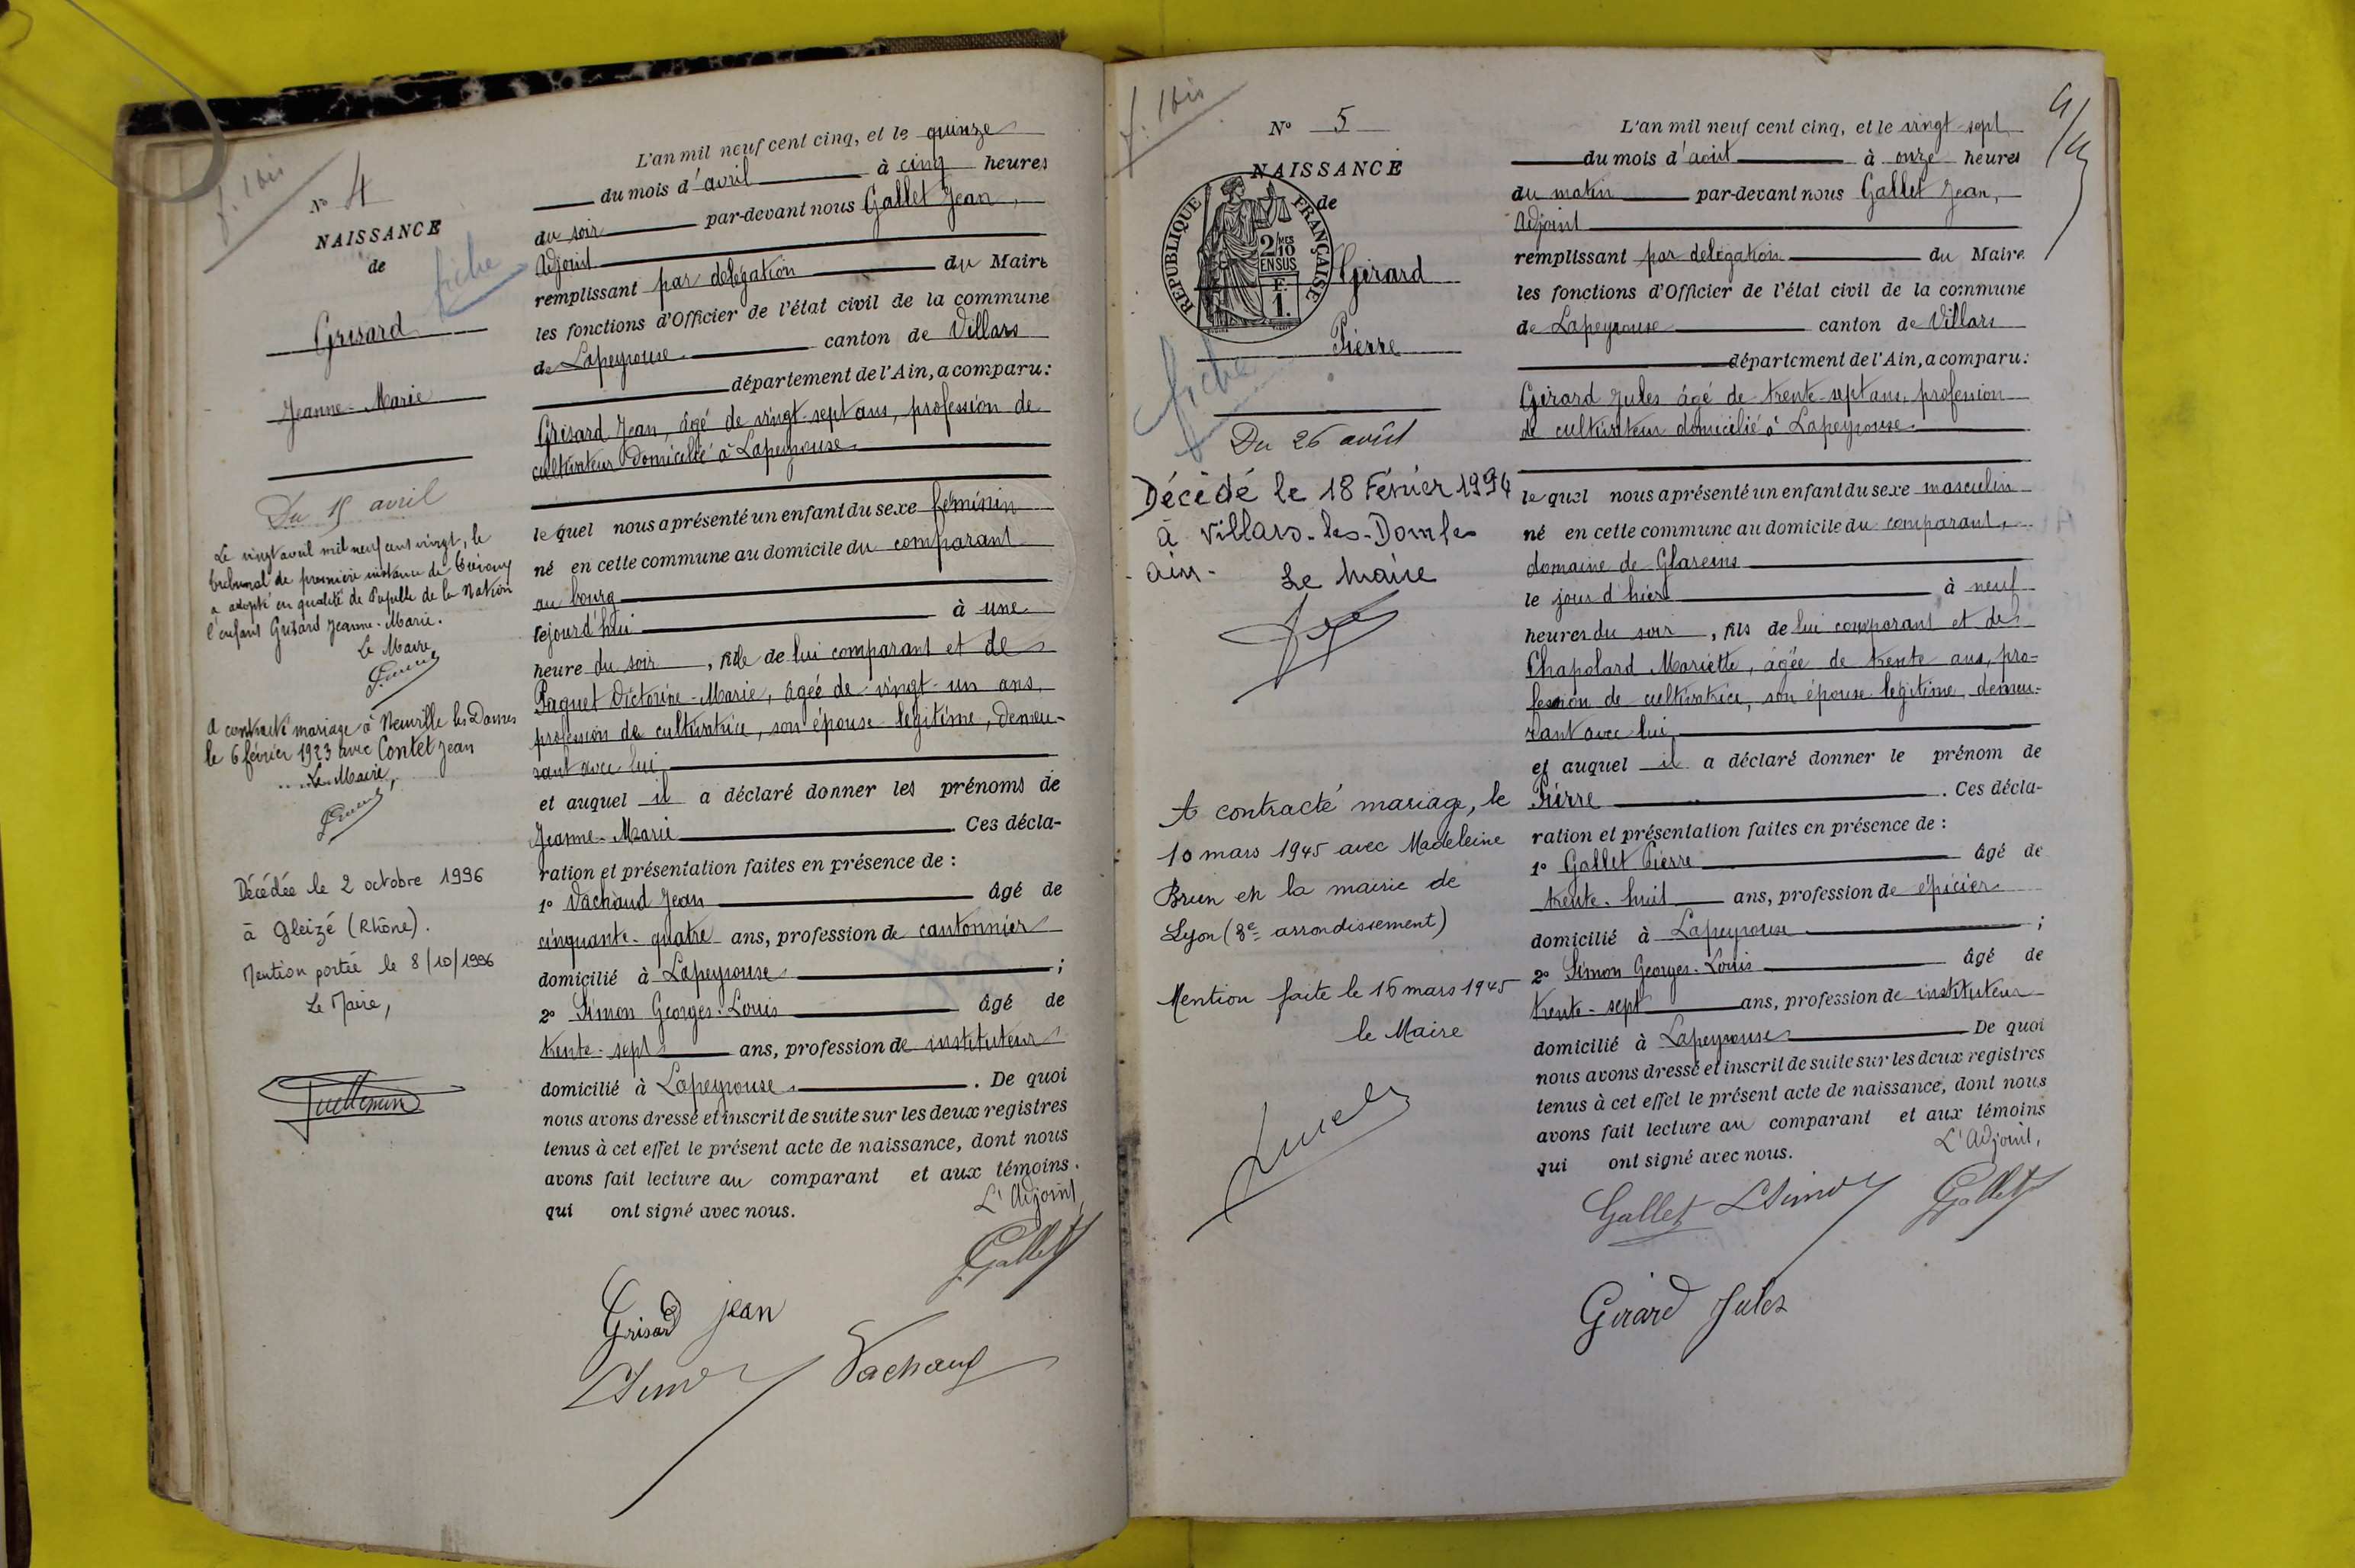 f. 1 bis
No 4
NAISSANCE
de
fiche
Grisard
Jeanne-Marie
Du 15 avril
Le vingt avril mil neuf cent vingt, le
tribunal de première instance de Trévoux
a adopté en qualité de Pupille de la Nation
l'enfant Grisard Jeanne-Marie.
Le Maire
A contracté mariage à Neuville les Dames
le 6 février 1923 avec Contet Jean
Le Maire,
Décédée le 2 octobre 1996
à Gleizé (Rhône).
Mention portée le 8/10/1996
Le Maire,
L'an mil neuf cent cinq, et le quinze
du mois d'avril à cinq heures
du soir par-devant nous Gallet Jean,
Adjoint
remplissant par délégation du Maire
les fonctions d'Officier de l'état civil de la commune
de Lapeyrouse canton de Villars
département de l'Ain, a comparu:
Grisard Jean, âgé de vingt-sept ans, profession de
cultivateur domicilié à Lapeyrouse.
lequel nous a présenté un enfant du sexe féminin
né en cette commune au domicile du comparant
au bourg
le jourd'hui à une
heure du soir, fille de lui comparant et de
Paquet Victorine-Marie, âgée de vingt-un ans,
profession de cultivatrice, son épouse légitime, demeu-
rant avec lui,
et auquel il a déclaré donner les prénoms de
Jeanne-Marie. Ces décla-
ration et présentation faites en présence de :
1° Vachaud Jean âgé de
cinquante-quatre ans, profession de cantonnier
domicilié à Lapeyrouse ;
2° Simon Georges-Louis âgé de
trente-sept ans, profession de instituteur
domicilié à Lapeyrouse. De quoi
nous avons dressé et inscrit de suite sur les deux registres
tenus à cet effet le présent acte de naissance, dont nous
avons fait lecture au comparant et aux témoins.
qui ont signé avec nous.
L'Adjoint,
J. Gallet
Grisard jean
LSimon Vachaud
f. 1 bis
No 5
NAISSANCE
de
RÉPUBLIQUE FRANÇAISE
2/10 MES
EN SUS
F.
1.
Girard
Pierre
fiche
Du 26 août
Décédé le 18 Février 1994
à Villars-les-Dombes
- Ain -
Le Maire
A contracté mariage, le
10 mars 1945 avec Madeleine
Brun en la mairie de
Lyon (8e arrondissement)
Mention faite le 16 mars 1945
le Maire
L'an mil neuf cent cinq, et le vingt-sept
du mois d'août à onze heures
du matin par-devant nous Gallet Jean,
Adjoint
remplissant par délégation du Maire
les fonctions d'Officier de l'état civil de la commune
de Lapeyrouse canton de Villars
département de l'Ain, a comparu:
Girard Jules âgé de trente-sept ans, profession
de cultivateur domicilié à Lapeyrouse.
lequel nous a présenté un enfant du sexe masculin
né en cette commune au domicile du comparant,
domaine de Glareins
le jour d'hier à neuf
heures du soir, fils de lui comparant et de
Chapolard Mariette, âgée de trente ans, pro-
fession de cultivatrice, son épouse légitime, demeu-
rant avec lui,
et auquel il a déclaré donner le prénom de
Pierre. Ces décla-
ration et présentation faites en présence de :
1° Gallet Pierre âgé de
trente-huit ans, profession de épicier
domicilié à Lapeyrouse ;
2° Simon Georges-Louis âgé de
trente-sept ans, profession de instituteur
domicilié à Lapeyrouse De quoi
nous avons dressé et inscrit de suite sur les deux registres
tenus à cet effet le présent acte de naissance, dont nous
avons fait lecture au comparant et aux témoins
qui ont signé avec nous.
L'Adjoint,
Gallet LSimon JGallet
Girard Jules